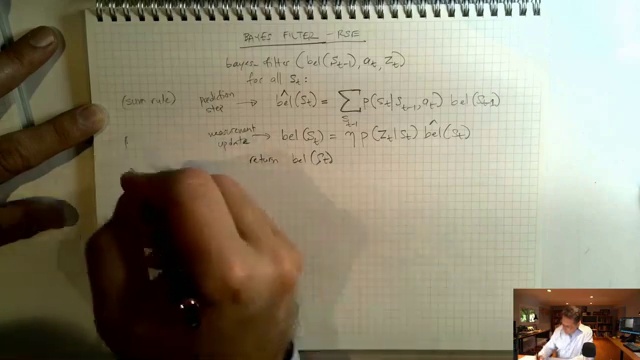 BAYES FILTER - RSE
bayes-filter (bel(S_{t-1}), a_t, Z_t)
for all S_t:
(sum rule) Prediction step → b̂el(S_t) = ∑_{S_{t-1}} p(S_t | S_{t-1}, a_t) bel(S_{t-1})
measurement update → bel(S_t) = η p(Z_t | S_t) b̂el(S_t)
return bel(S_t)